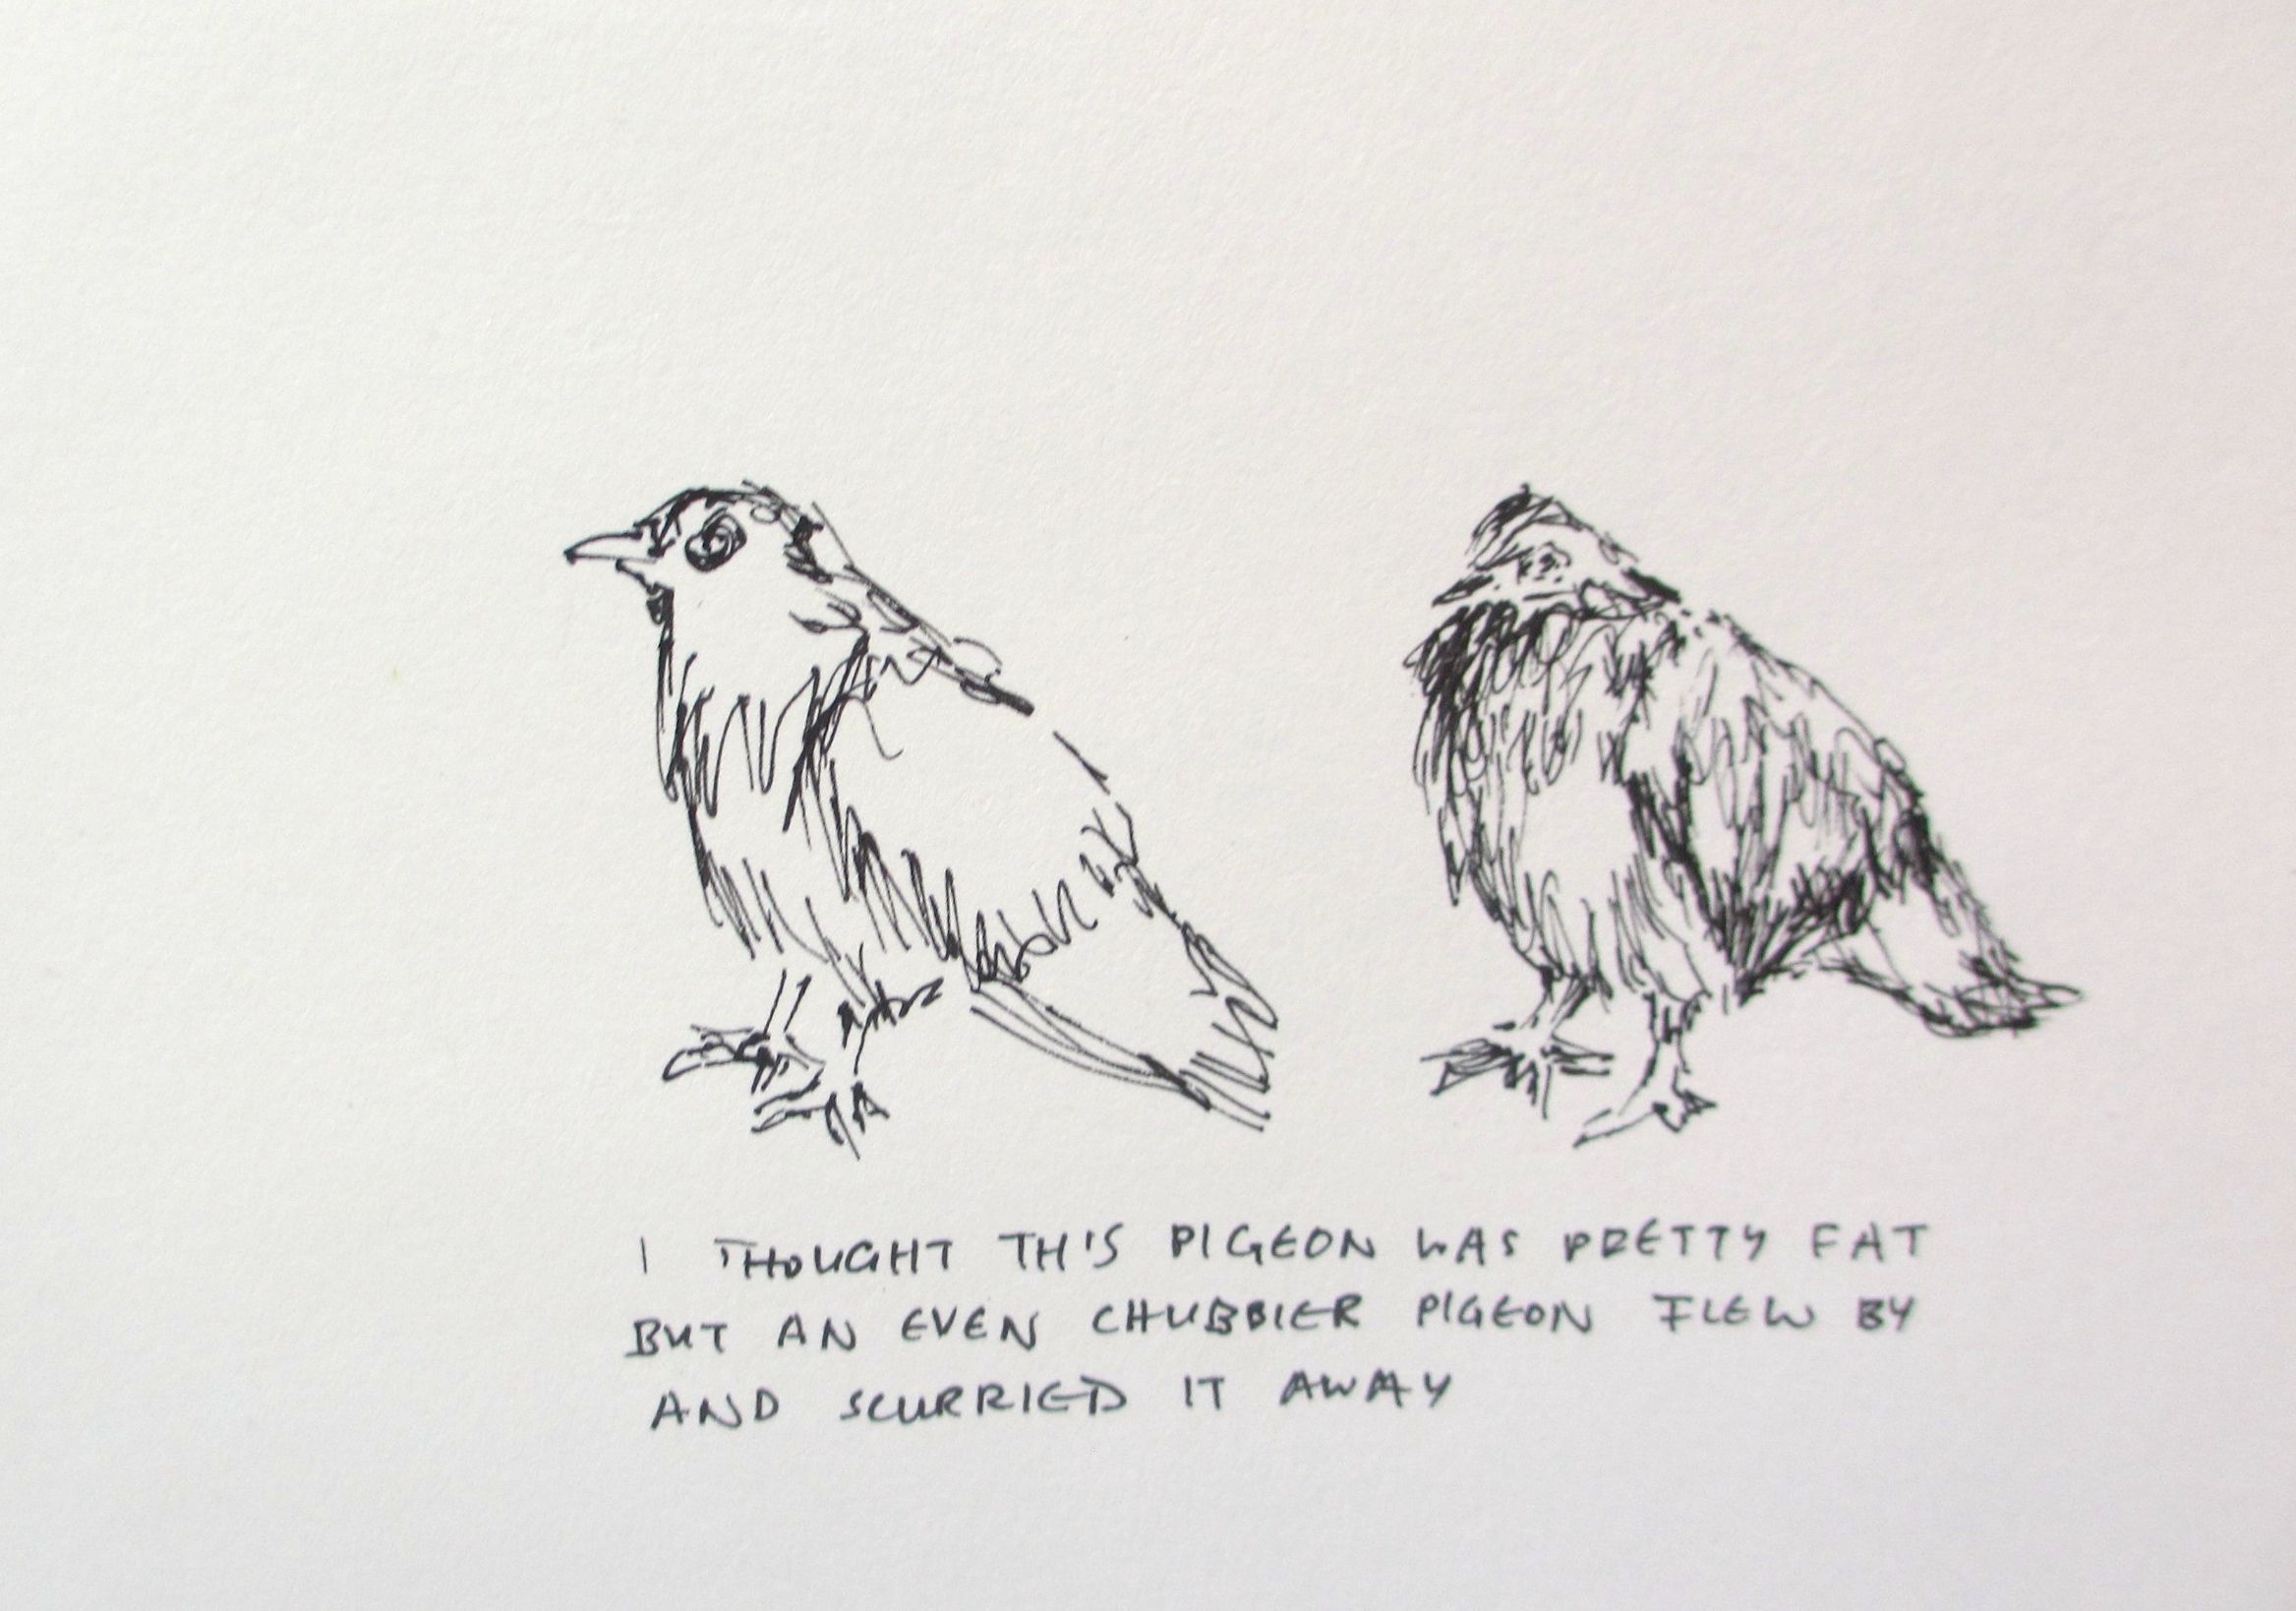 I THOUGHT THIS PIGEON WAS PRETTY FAT
BUT AN EVEN CHUBBIER PIGEON FLEW BY
AND SCURRIED IT AWAY